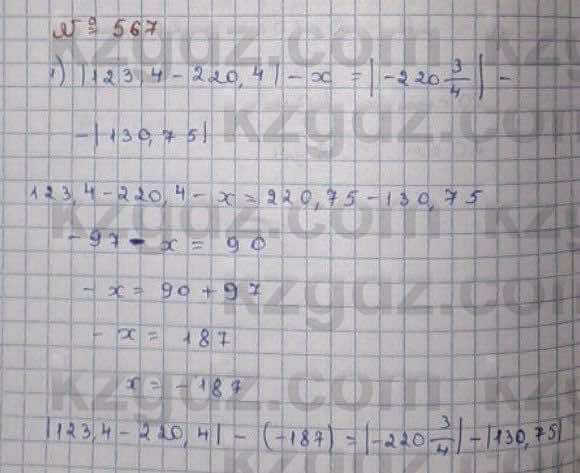 № 567
1) |123,4 - 220,4| - x = |-220 3/4| -
- |130,75|
123,4 - 220,4 - x = 220,75 - 130,75
- 97 - x = 90
- x = 90 + 97
- x = 187
x = - 187
|123,4 - 220,4| - (-187) = |-220 3/4| - |130,75|
kzgdz.com